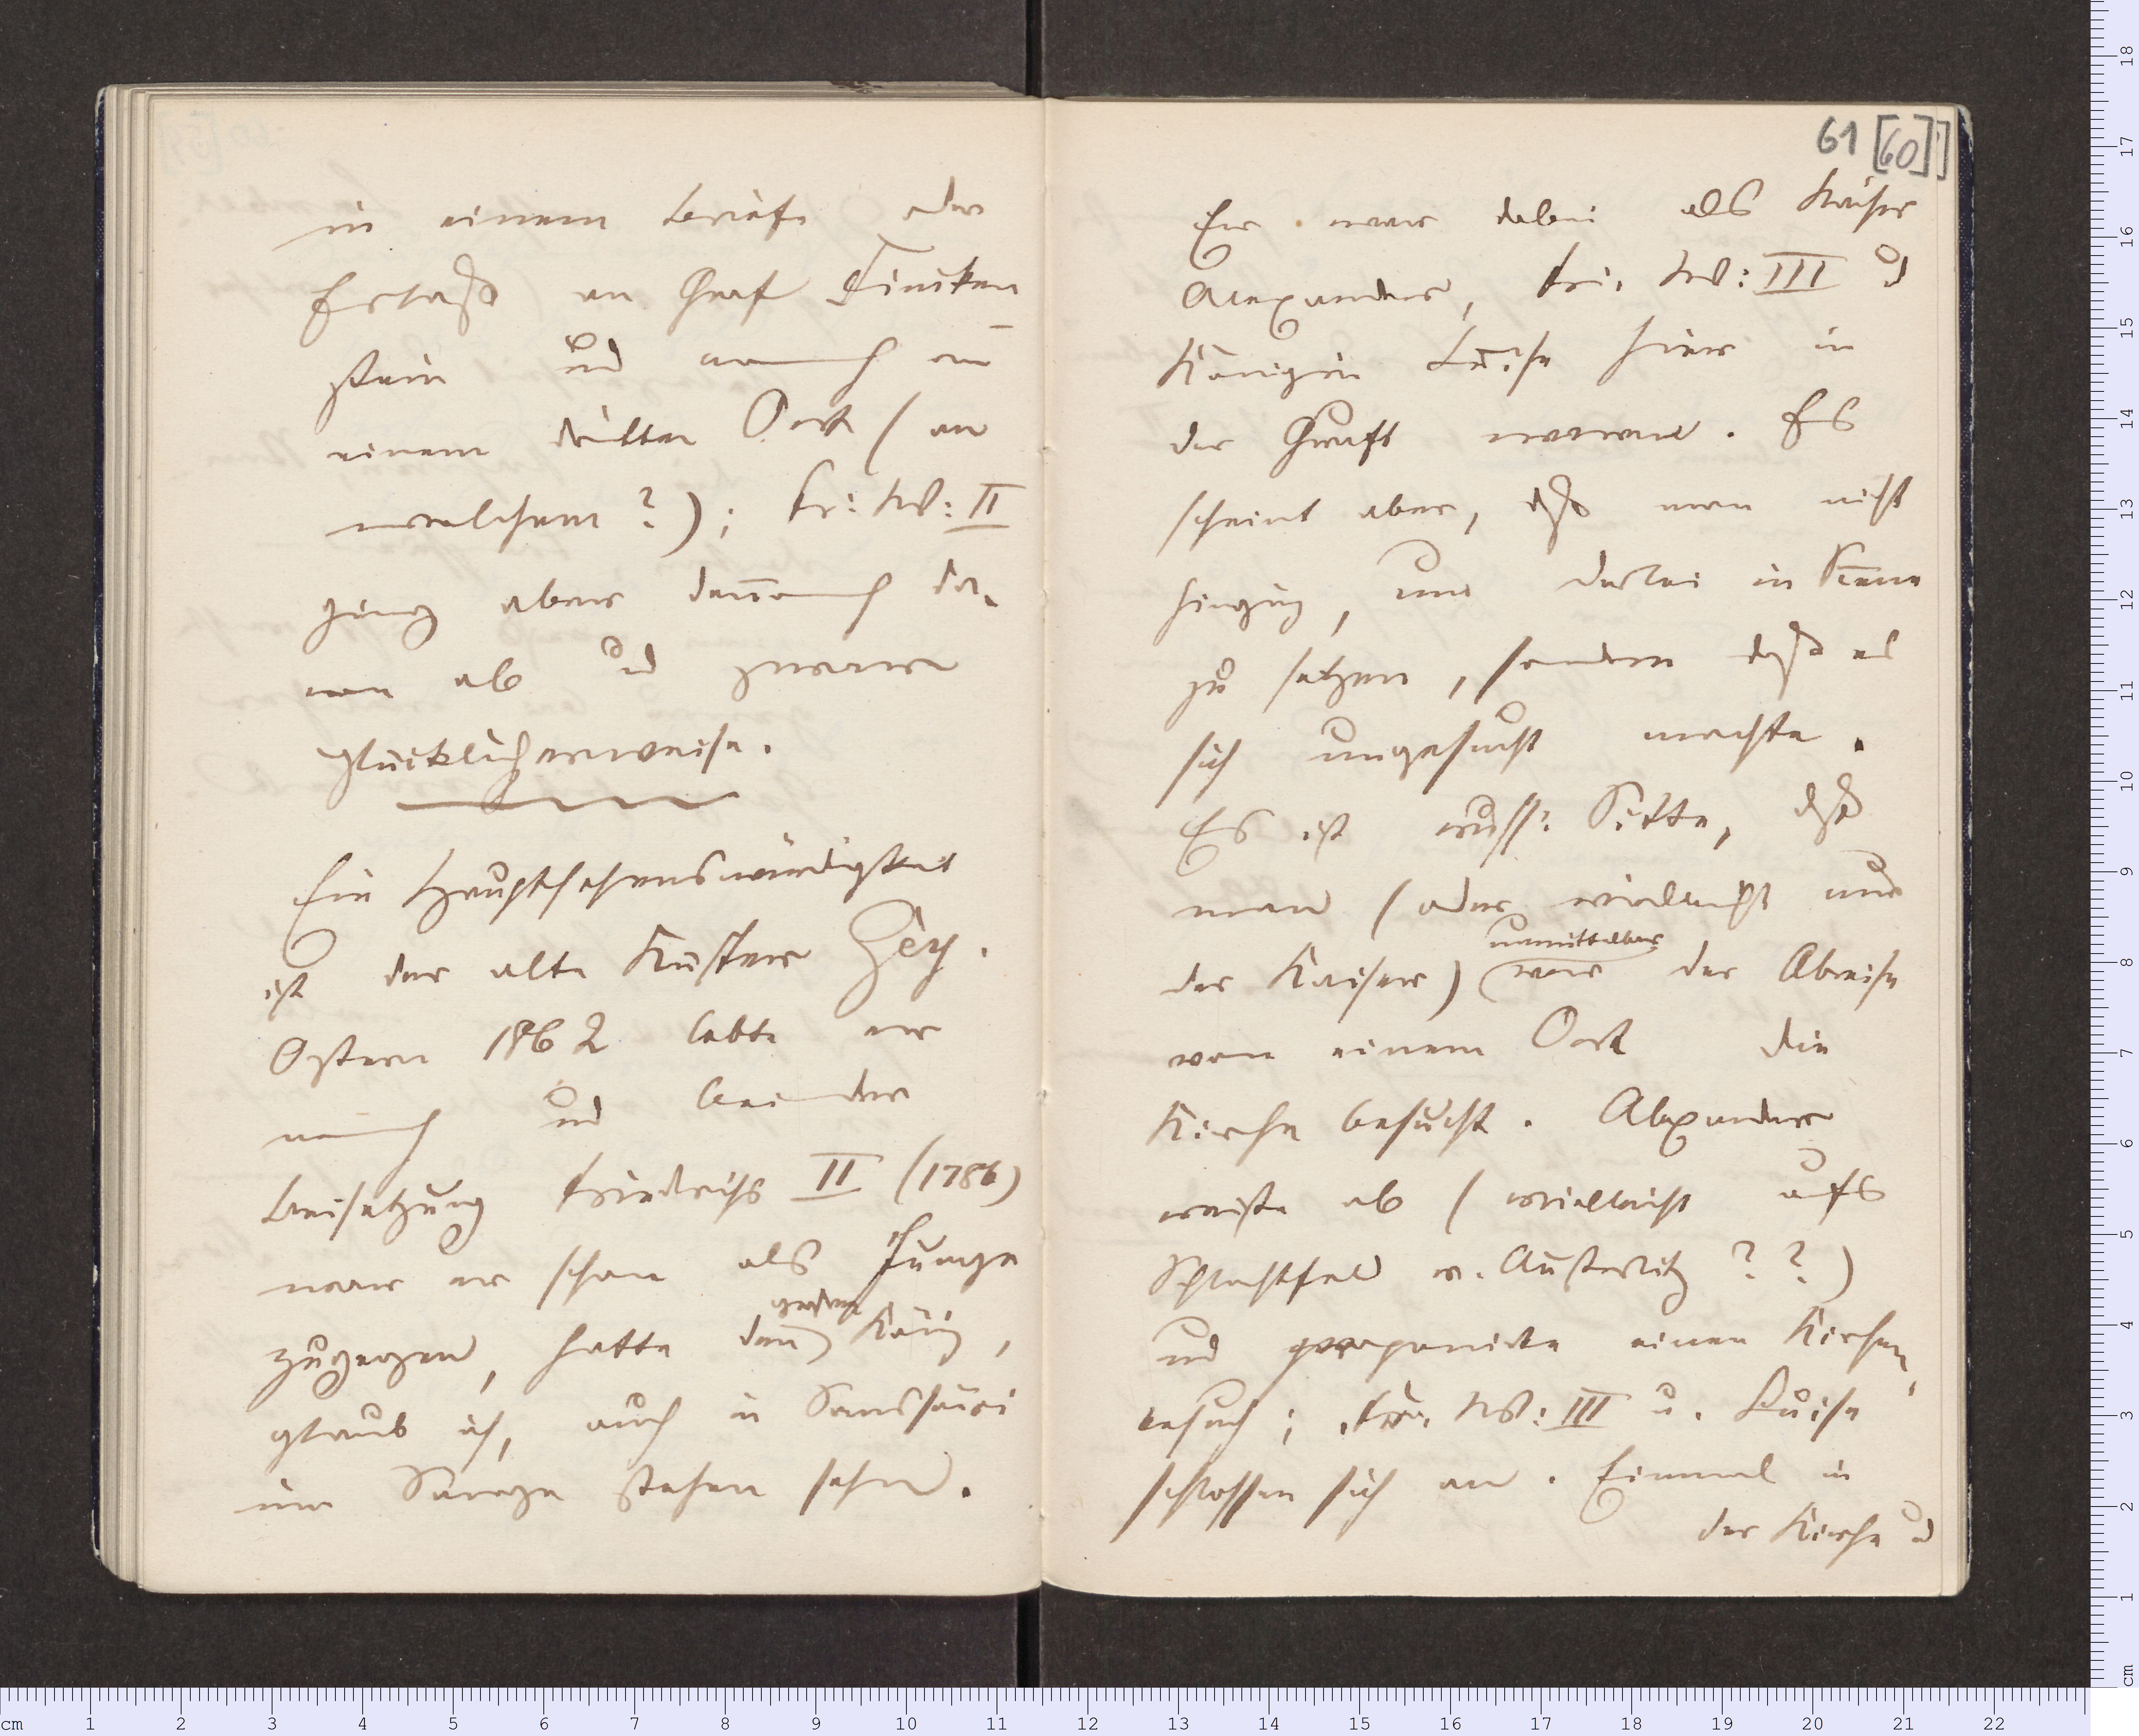 in einem Briefe oder
Erlaß an Graf Finken
stein und noch an
einem dritten Ort (an
welchem?); Fr: W: II
ging aber dennoch da-
von ab und zwar
glücklicherweise.
Ein Hauptsehenswürdigkeit
ist der alte Küster Geh.
Ostern 1862 lebte er
noch und bei der
Beisetzung Friedrichs II (1786)
war er schon als Junge
zugegen, hatte den König,
glaub ich, auch in Sanssouci
im Sarge stehen sehn.
61 [60]
Er war dabei als Kaiser
Alexander, Fr. W: III u
Königin Luise hier in
der Gruft waren. Es
scheint aber, daß man nicht
hinging, um derlei in Scene
zu setzen, sondern daß es
sich ungesucht machte.
Es ist russ: Sitte, daß
man (oder vielleicht nur
der Kaiser) unmittelbar vor der Abreise
von einem Ort die
Kirche besucht. Alexander
reiste ab (vielleicht aufs
Schlachtfeld v. Austerlitz ??)
und proponirte einen Kirchen-
besuch; Fr. W: III u. Luise
schlossen sich an. Einmal in
der Kirche u